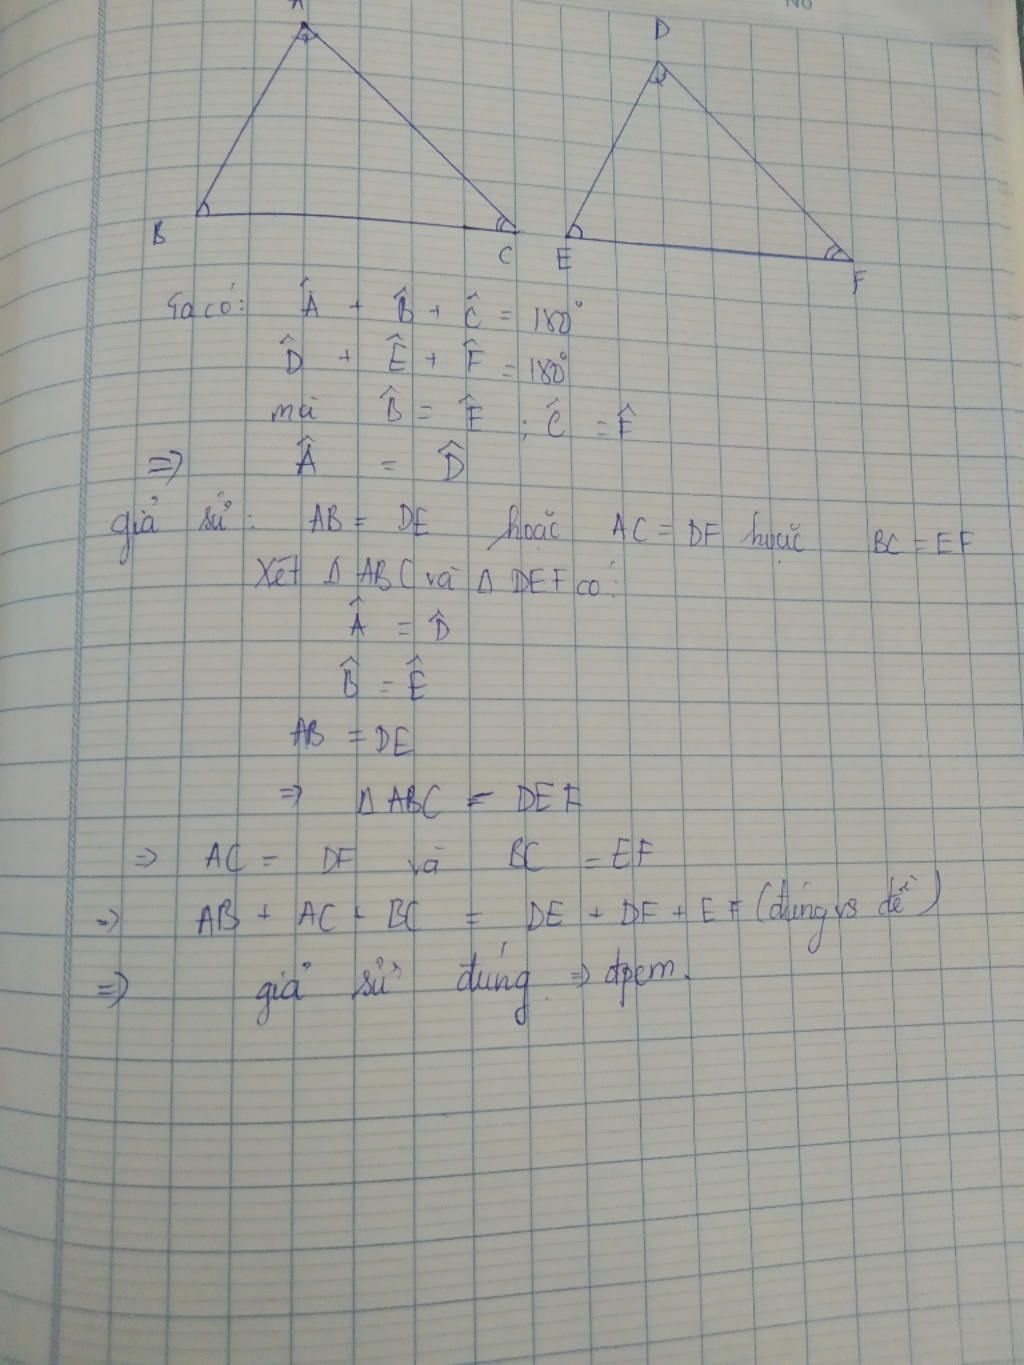 No
A
D
B
C
E
F
Ta có: Â + B̂ + Ĉ = 180°
D̂ + Ê + F̂ = 180°
mà B̂ = Ê ; Ĉ = F̂
=> Â = D̂
giả sử: AB = DE hoặc AC = DF hoặc BC = EF
Xét Δ ABC và Δ DEF có:
Â = D̂
B̂ = Ê
AB = DE
=> Δ ABC = DEF
=> AC = DF và BC = EF
=> AB + AC + BC = DE + DF + EF (đúng vs đề)
=> giả sử đúng => đpcm.